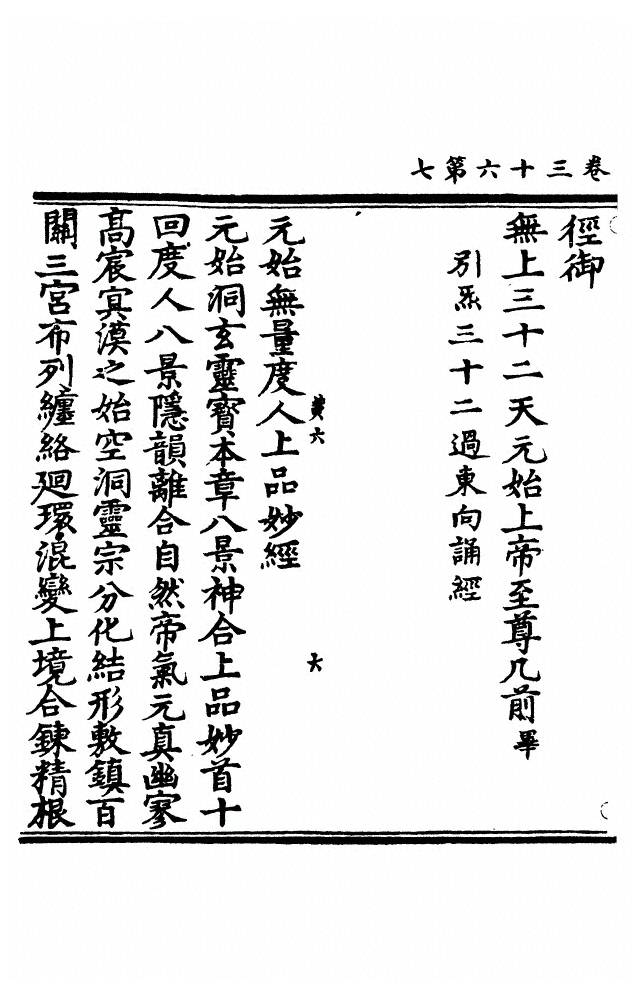 卷三十六第七
徑御
無上三十二天元始上帝至尊几前畢
引炁三十二過東向誦經
黃六
六
元始無量度人上品妙經
元始洞玄靈寶本章八景神合上品妙首十
回度人八景隱韻離合自然帝氣元真幽寥
高宸㝠漠之始空洞靈宗分化結形敷鎮百
關三宮布列纏絡廻環混變上境合鍊精根